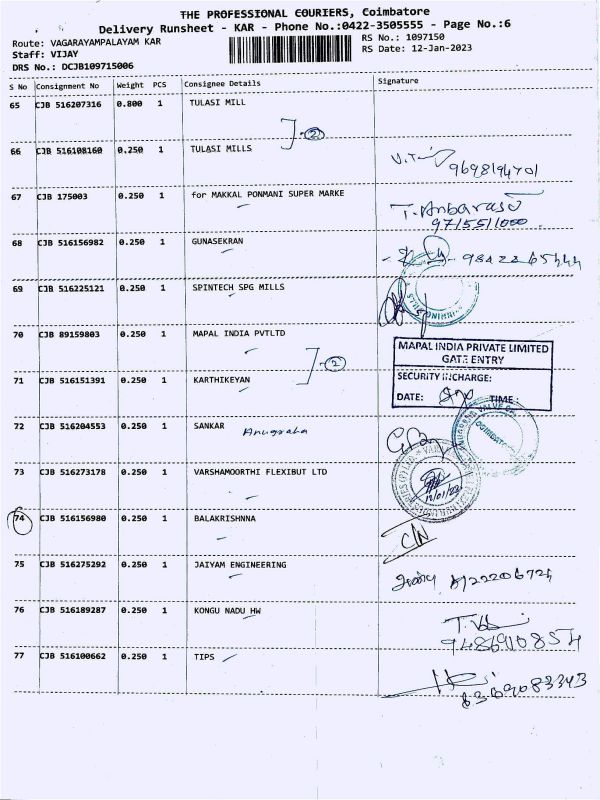 THE PROFESSIONAL COURIERS, Coimbatore
Delivery Runsheet - KAR - Phone No.:0422-3505555 - Page No.:6
Route: VAGARAYAMPALAYAM KAR
RS No.: 1097150
Staff: VIJAY
RS Date: 12-Jan-2023
DRS No.: DCJB109715006
S No Consignment No Weight PCS Consignee Details Signature
65 CJB 516207316 0.800 1 TULASI MILL
2
66 CJB 516108160 0.250 1 TULASI MILLS
9698194701
67 CJB 175003 0.250 1 for MAKKAL PONMANI SUPER MARKE
T. Anbarasu
9715511000
68 CJB 516156982 0.250 1 GUNASEKRAN
69 CJB 516225121 0.250 1 SPINTECH SPG MILLS
70 CJB 89159803 0.250 1 MAPAL INDIA PVTLTD
MAPAL INDIA PRIVATE LIMITED
GATE ENTRY
2
71 CJB 516151391 0.250 1 KARTHIKEYAN
SECURITY INCHARGE:
DATE: TIME:
72 CJB 516204553 0.250 1 SANKAR Anugraha
73 CJB 516273178 0.250 1 VARSHAMOORTHI FLEXIBUT LTD
74 CJB 516156980 0.250 1 BALAKRISHNNA
C/N
75 CJB 516275292 0.250 1 JAIYAM ENGINEERING
76 CJB 516189287 0.250 1 KONGU NADU HW
9486910854
77 CJB 516100662 0.250 1 TIPS